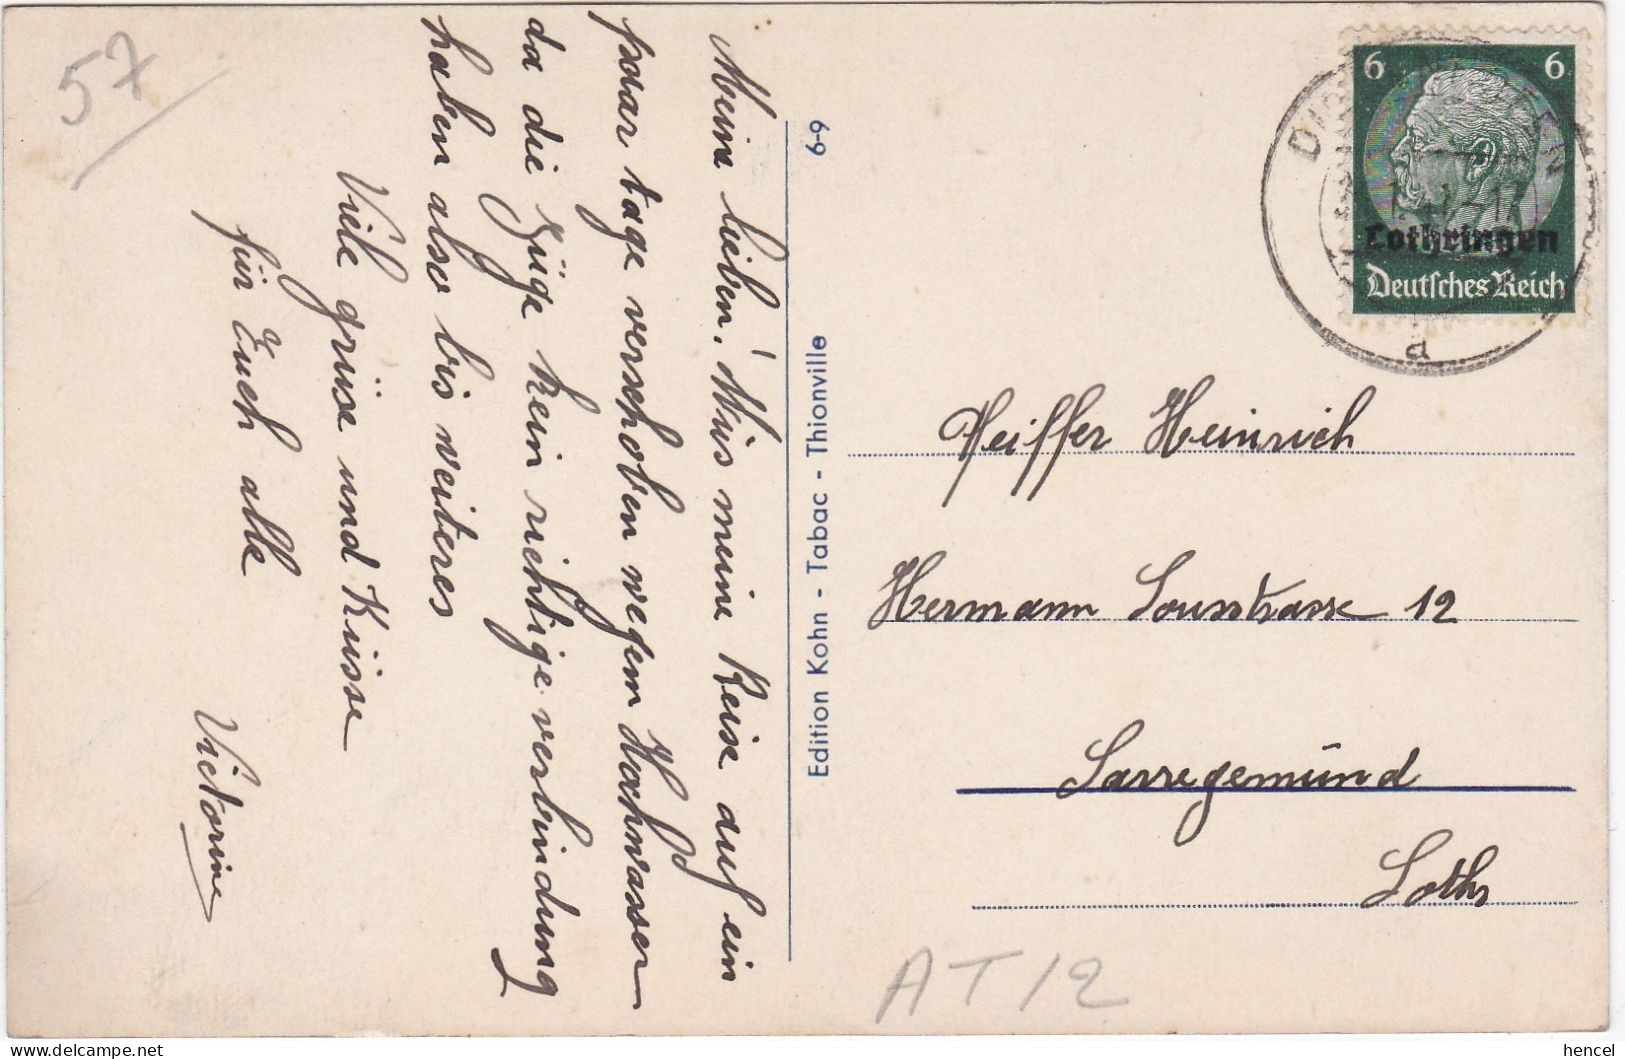 57
Meine lieben! Mus meine Reise auf ein
paar tage verschoben wegem Hochwasser
da die Züge kein richtige verbindung
haben also bis veiteres
Viele grüse und Küsse
für Euch alle
Victorine
6-9
Edition Kohn - Tabac - Thionville
6 6
Lothringen
Deutsches Reich
a
Peiffer Heinrich
Hermann Lonsstrasse 12
Sarregemünd
Lothr
AT/2
hencel
www.delcampe.net